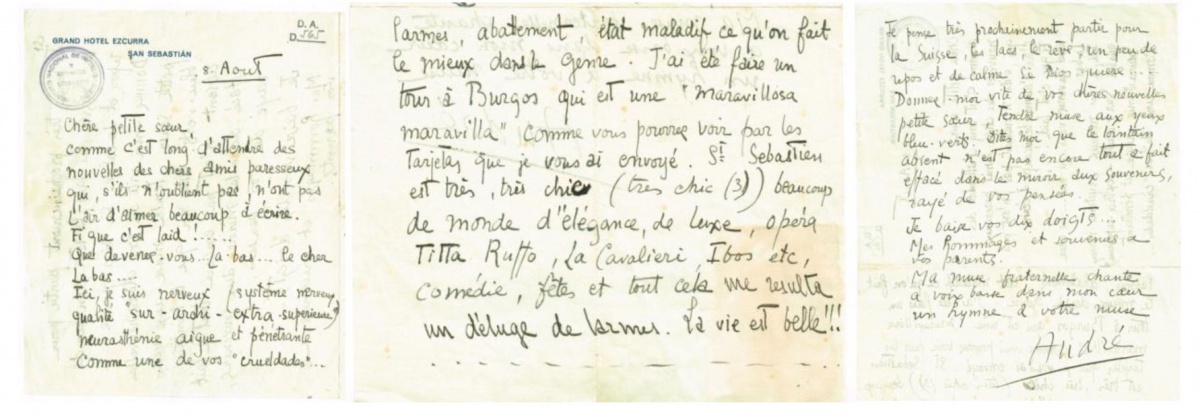 D.A.
D.565
GRAND HOTEL EZCURRA
SAN SEBASTIÁN
8. Aout
Chère petite sœur,
comme c'est long d'attendre des
nouvelles des chers amis paresseux
qui, s'ils n'oublient pas, n'ont pas
l'air d'aimer beaucoup à écrire.
Fi que c'est laid!.....
Que devenez-vous... La-bas... le cher
La bas....
Ici, je suis nerveux (système nerveux
qualité "sur-archi-extra-superieure")
neurasthénie aigue et pénétrante
Comme une de vos "crueldades"...
larmes, abattement, état maladif ce qu'on fait
le mieux dans le genre. J'ai été faire un
tour à Burgos qui est une "maravillosa
maravilla" comme vous pourrez voir par les
Tarjetas que je vous ai envoyé. St Sebastien
est très, très chic (très chic (3)) beaucoup
de monde d'élégance, de luxe, opéra
Titta Ruffo, La Cavalieri, Ibos etc,
comédie, fêtes et tout cela me resulta
un déluge de larmes. La vie est belle!!
Je pense très prochainement partir pour
la Suisse, les lacs, le rêve, un peu de
repos et de calme Si Dios quiere...
Donnez-moi vite de vos chères nouvelles
petite sœur, Tendre muse aux yeux
bleu-verts. Dites moi que le lointain
absent n'est pas encore tout à fait
effacé dans le miroir aux souvenirs,
rayé de vos pensées.
Je baise vos dix doigts...
Mes hommages et souvenirs a
vos parents.
Ma muse fraternelle chante
à voix basse dans mon cœur
un hymne à votre muse
André